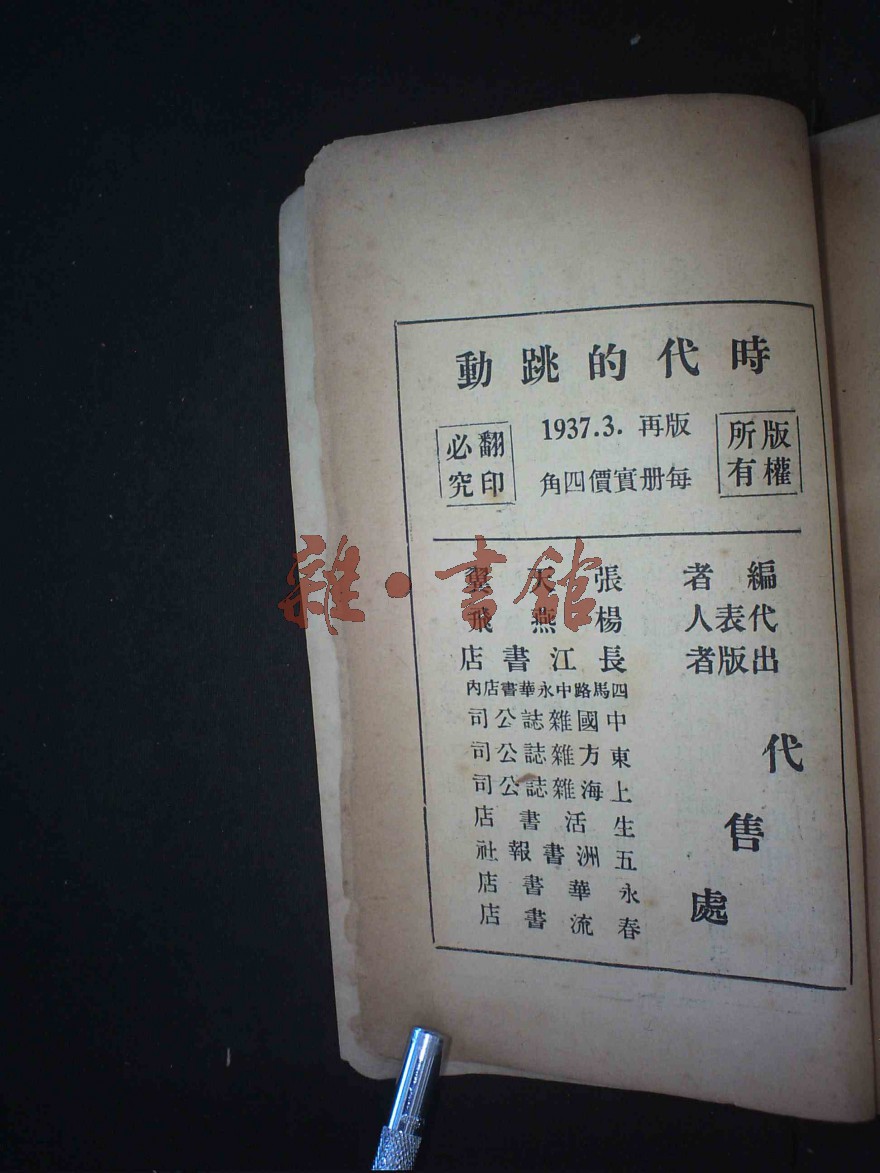 時代的跳動
版權所有
1937.3. 再版
每册實價四角
翻印必究
編者 張天翼
代表人 楊燕飛
出版者 長江書店
四馬路中永華書店內
代售處
中國雜誌公司
東方雜誌公司
上海雜誌公司
生活書店
五洲書報社
永華書店
春流書店
雜·書館